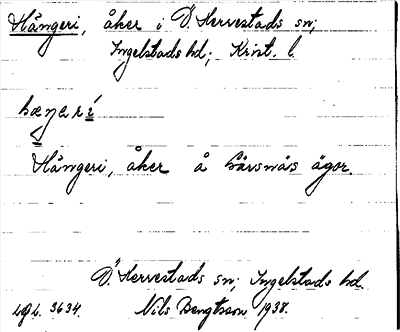 Hångeri, åker i Ö. Herrestads sn;
Ingelstads hd; Krist. l.
hæŋarí
Hångeri, åker å Bårsnäs ägor.
Ö. Herrestads sn; Ingelstads hd.
3634. Nils Bengtsson 1938.